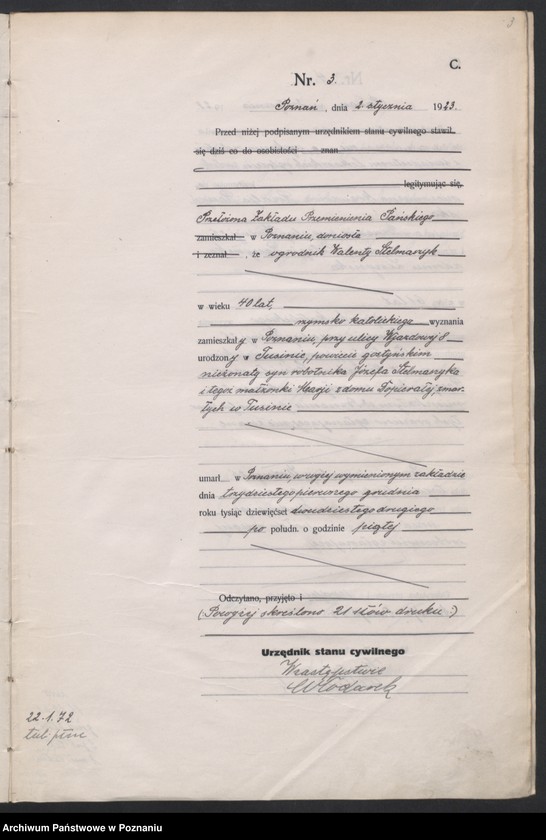 3
C.
Nr. 3.
Poznań, dnia 2 stycznia 1923.
Przed niżej podpisanym urzędnikiem stanu cywilnego stawił
się dziś co do osobistości znan
legitymując się,
Przełożona Zakładu Przemienienia Pańskiego
zamieszkał w Poznaniu, doniosła
i zeznał, że ogrodnik Walenty Stelmaszyk
w wieku 40 lat,
rzymsko katolickiego wyznania
zamieszkały w Poznaniu, przy ulicy Wjazdowej 8
urodzony w Tusinie, powiecie gostyńskim
nieżonaty syn robotnika Józefa Stelmaszyka
i tegoż małżonki Marji z domu Topierały, zmar-
łych w Tusinie
umarł w Poznaniu, w wyżej wymienionym zakładzie
dnia trzydziestego pierwszego grudnia
roku tysiąc dziewięćset dwudziestego drugiego
po połudn. o godzinie piątej
Odczytano, przyjęto i
(Powyżej skreślono 21 słów druku :)
Urzędnik stanu cywilnego
W zastępstwie
Włodarek
22.1.72
Archiwum Państwowe w Poznaniu